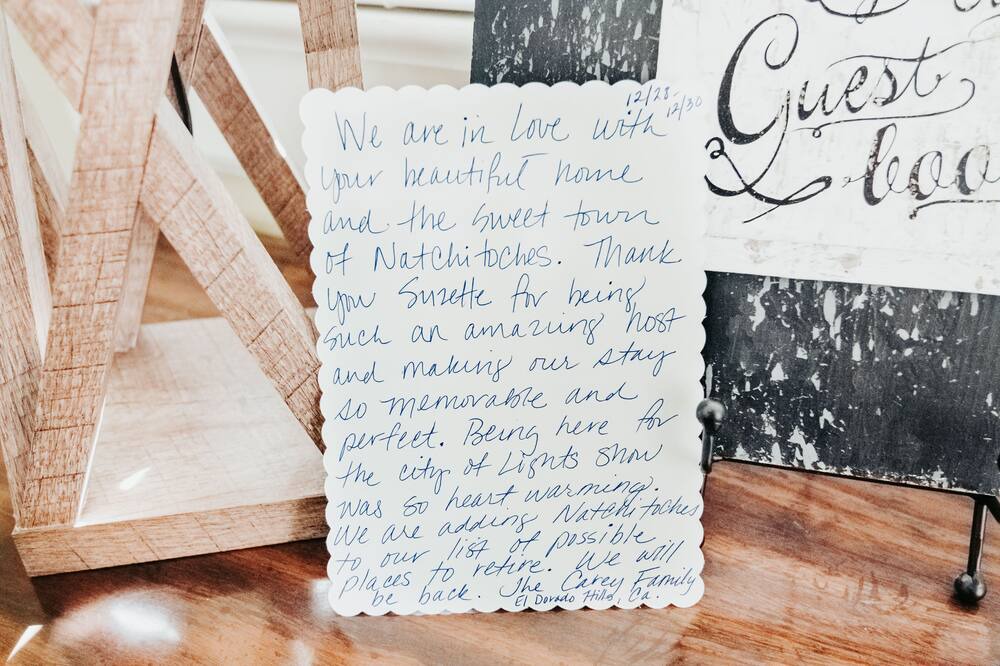 12/28-
12/30
We are in love with
your beautiful home
and the sweet town
of Natchitoches. Thank
you Suzette for being
such an amazing host
and making our stay
so memorable and
perfect. Being here for
the city of Lights show
was so heart warming.
We are adding Natchitoches
to our list of possible
places to retire. We will
be back. The Carey Family
El Dorado Hills, Ca.
Guest
boo